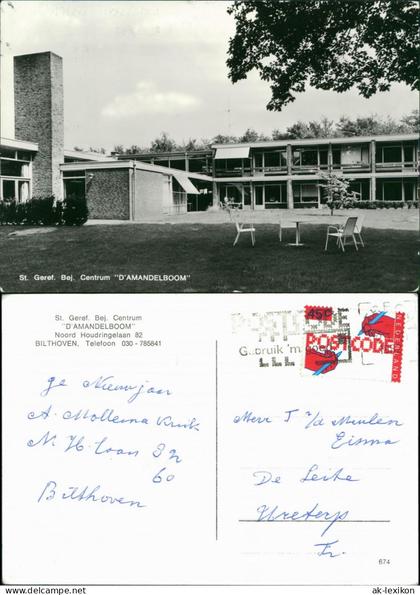 St. Geref. Bej. Centrum "D'AMANDELBOOM"
St. Geref. Bej. Centrum
"D'AMANDELBOOM"
Noord Houdringelaan 82
BILTHOVEN, Telefoon 030 - 785841
POSTCODE
Gebruik 'm
45c
POSTCODE
NEDERLAND
ge Nieuwjaar
A Mollema
N. H. Laan
60
Bilthoven
Mevr J v/d Meulen
Eisma
De Leite
Ureterp
Fr.
674
ak-lexikon.de